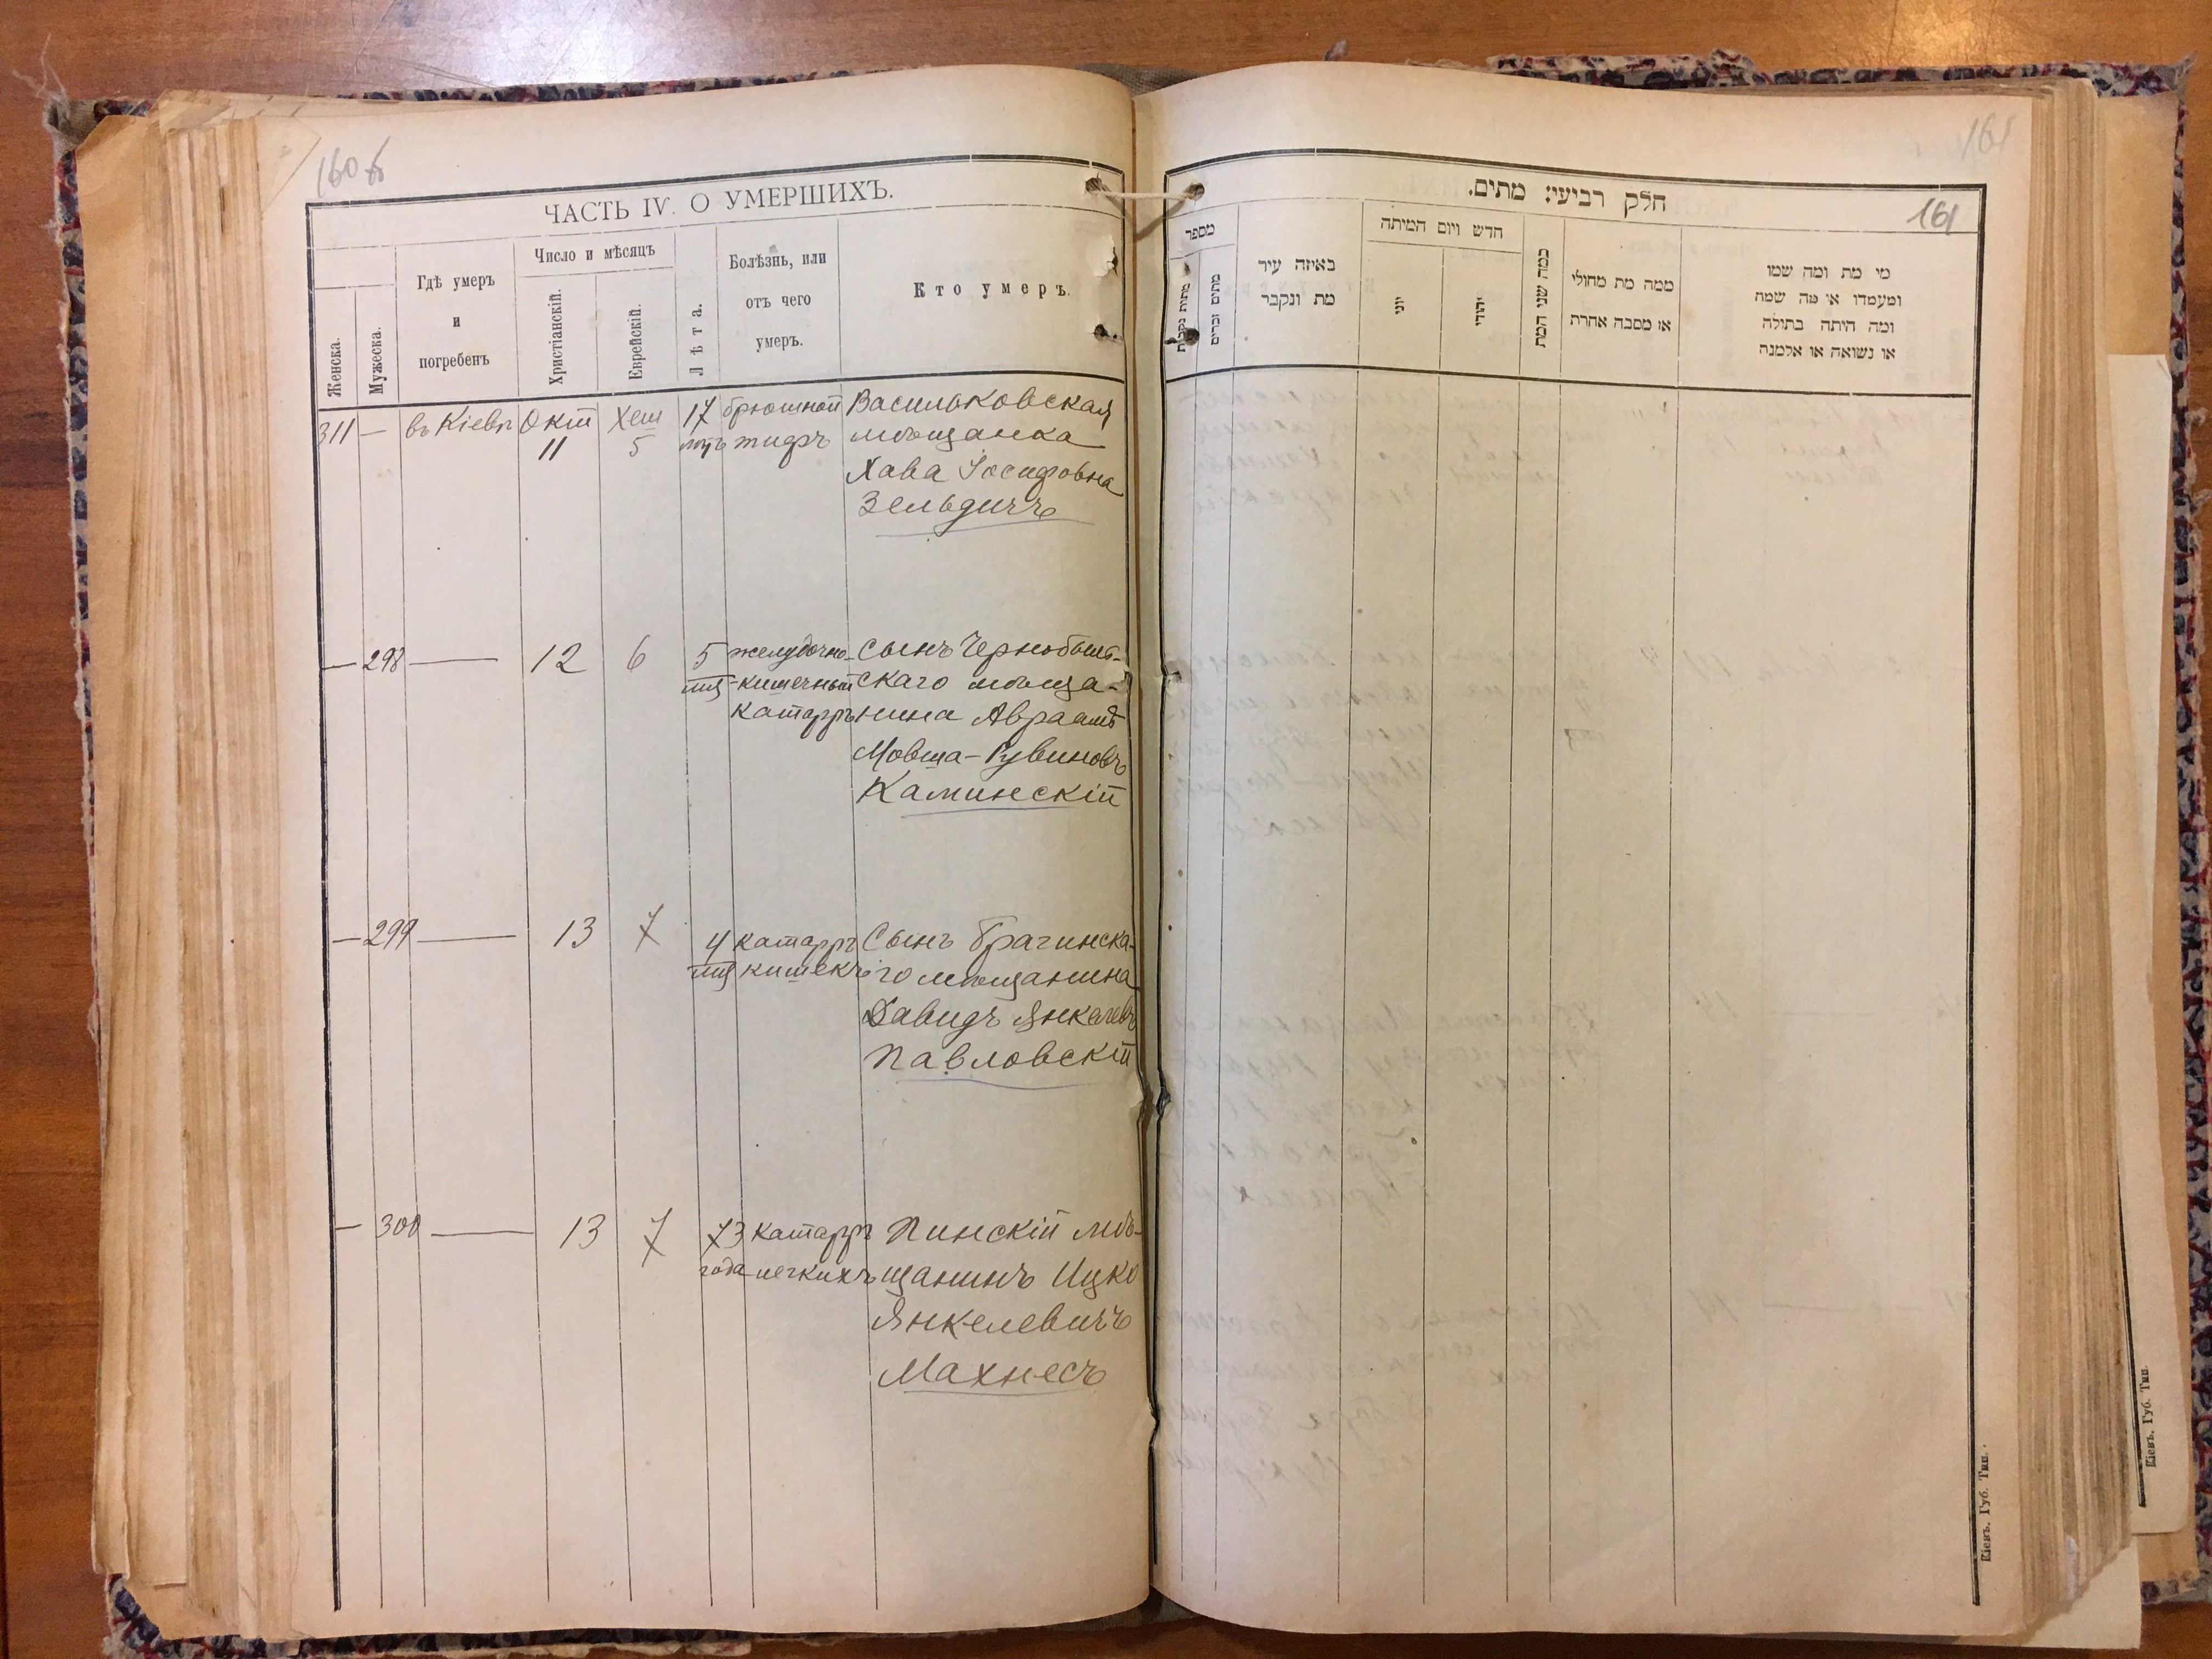 160 об
ЧАСТЬ IV. О УМЕРШИХЪ.
Женска.
Мужеска.
Гдѣ умеръ
и
погребенъ
Число и мѣсяцъ
Христіанскій.
Еврейскій.
Лѣта.
Болѣзнь, или
отъ чего
умеръ.
Кто умеръ.
311 — въ Кіевѣ Окт Хеш 17 брюшной Васильковская
11 5 лѣтъ тифъ мѣщанка
Хава Іосифовна
Зельдичъ
— 298 — 12 6 5 желудочно- Сынъ Чернобыль-
мц -кишечный скаго мѣща-
катарръ нина Авраамъ
Мовша-Рувиновъ
Каминскій
— 299 — 13 7 4 катарръ Сынъ Брагинска-
мц кишекъ го мѣщанина
Давидъ Янкелевъ
Павловскій
— 300 — 13 7 73 катарръ Пинскій мѣ-
года легкихъ щанинъ Ицко
Янкелевичъ
Махнесъ
161
חלק רביעי: מתים.
161
מספר
מתות נקבות
מתים זכרים
באיזה עיר
מת ונקבר
חדש ויום המיתה
יוני
יהודי
כמה שני המת
ממה מת מחולי
או מסבה אחרת
מי מת ומה שמו
ומעמדו או מה שמה
ומה היתה בתולה
או נשואה או אלמנה
Кіевъ. Губ. Тип.
Кіевъ. Губ. Тип